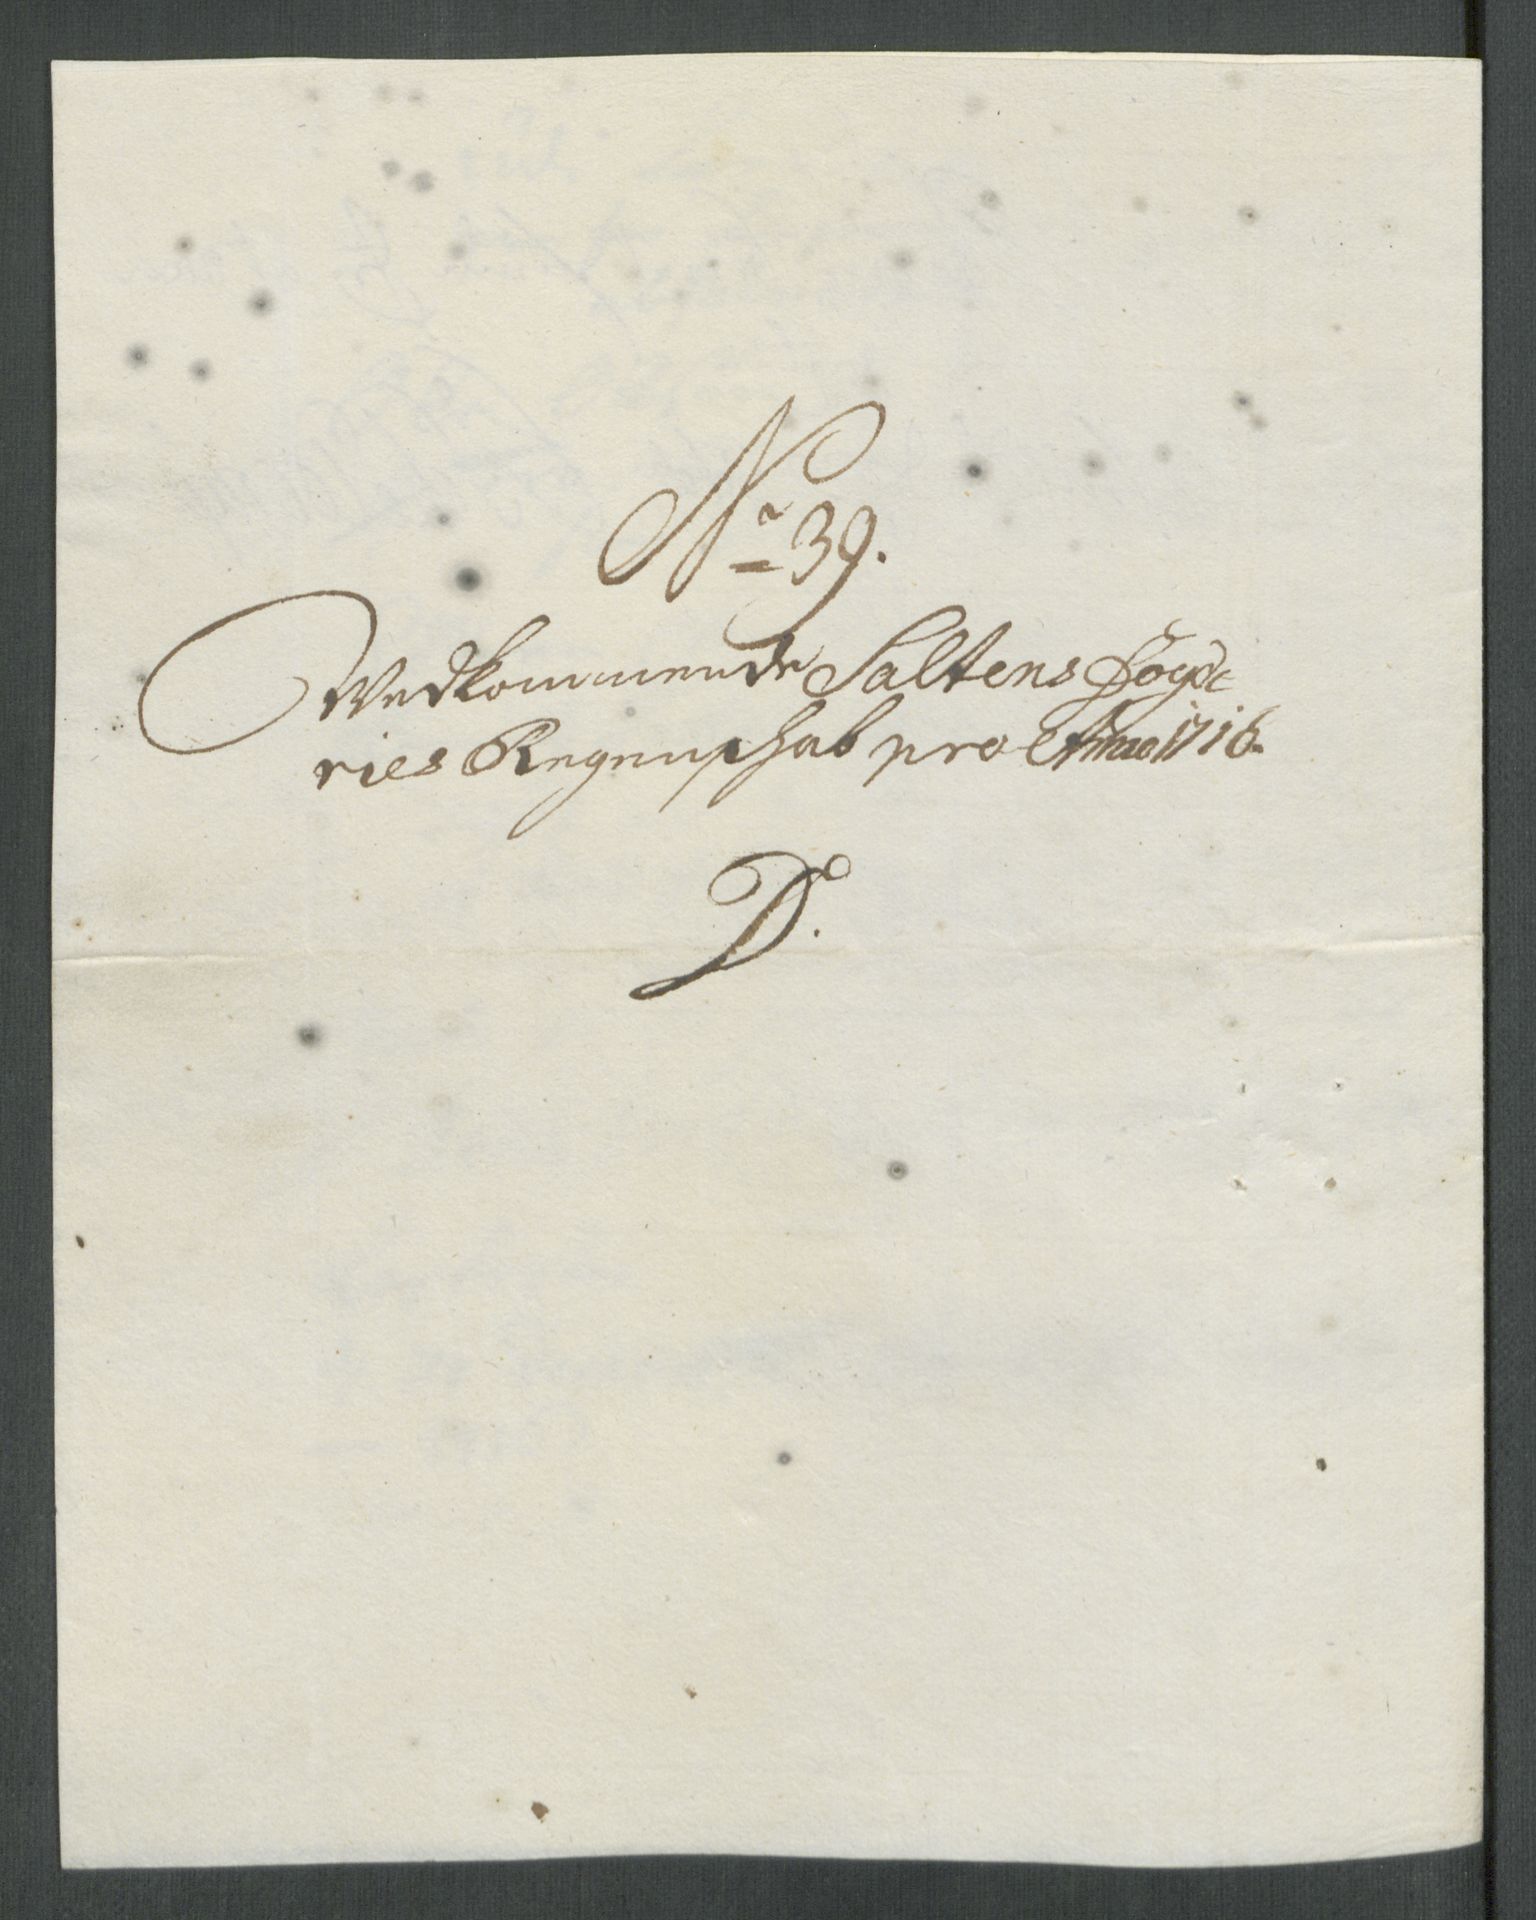 No 39.
Vedkommende Saltens Fogde
ries Regenschab pro Anno 1716.
D.